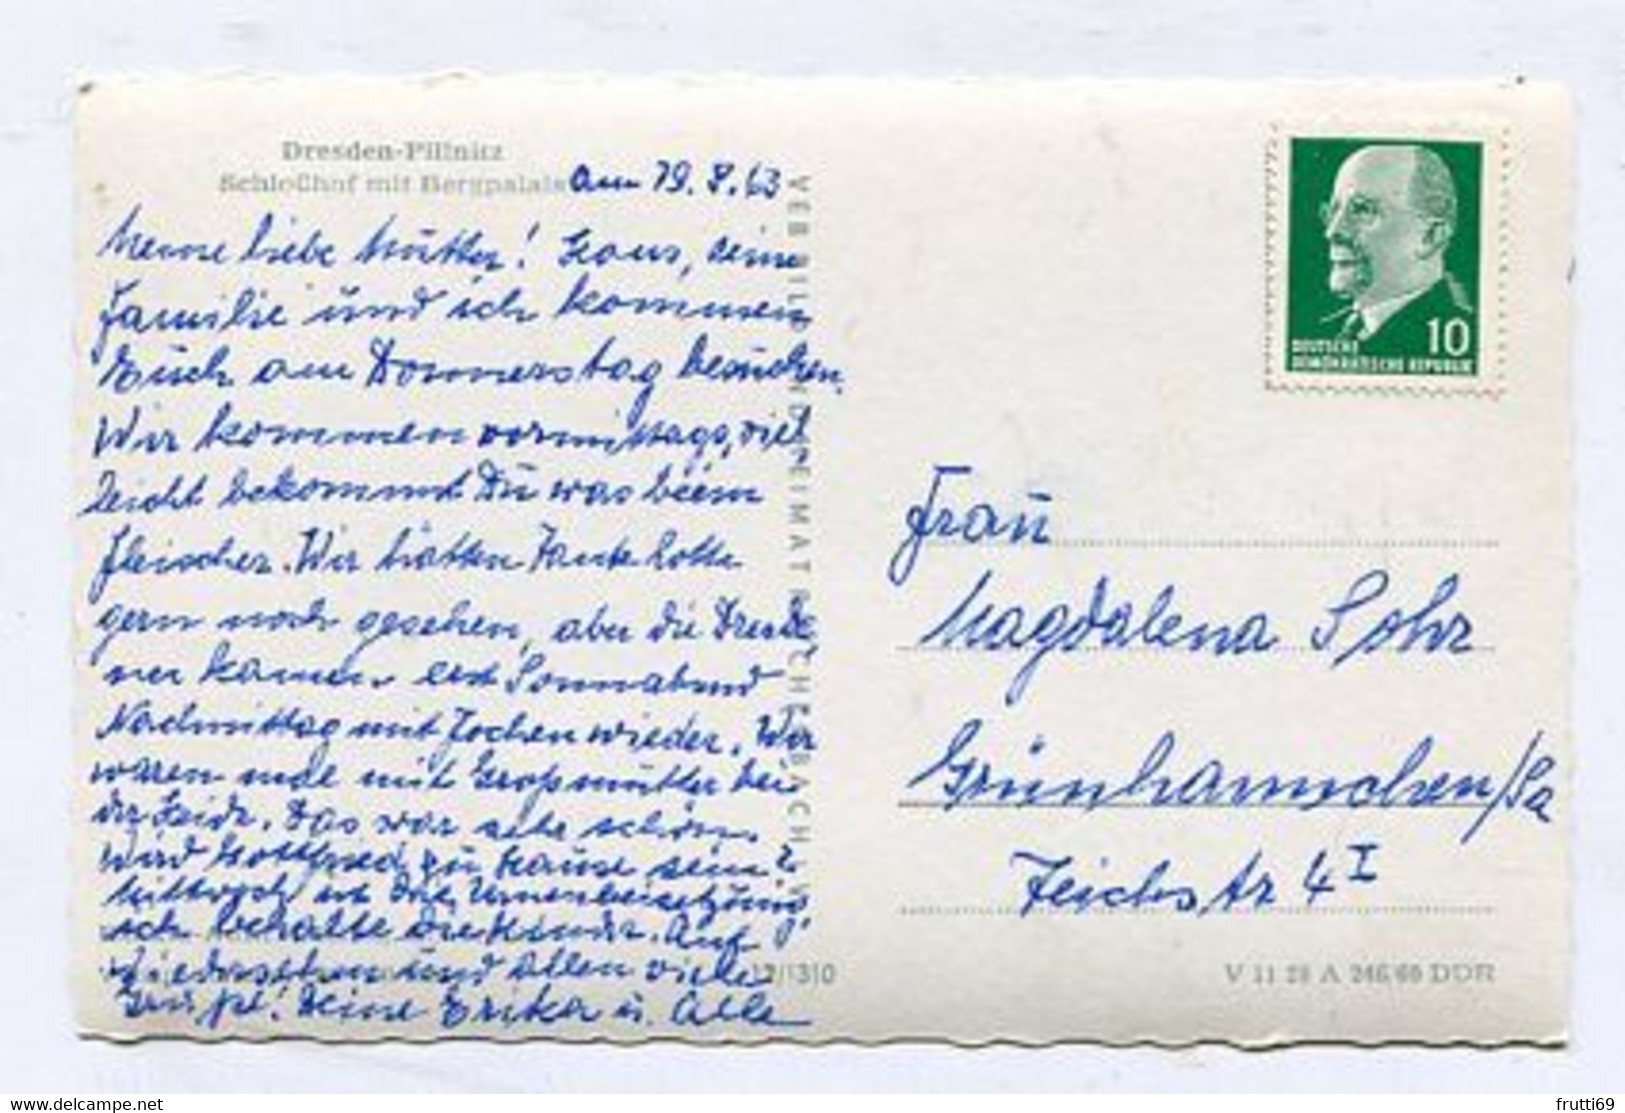 Dresden-Pillnitz
Schloßhof mit Bergpalais
am 19. 8. 63
Meine liebe Mutter! Hans, seine
Familie und ich kommen
Euch am Donnerstag besuchen.
Wir kommen vormittags, viel,
leicht bekommst Du was beim
Fleischer. Wir hätten Tante Lotte
gern noch gesehen, aber die Dresde,
ner kamen erst Sonnabend
Nachmittag mit Jochen wieder. Wir
waren mal mit Großmutter bei
der Heide. Das war sehr schön.
Wird Gottfried zu Hause sein?
Mittwoch ist die Urnenbeisetzung,
ich behalte die Kinder. Auf
Wiedersehen und allen viele
Grüße! Deine Erika u. Alle
VEB BILD UND HEIMAT REICHENBACH I. V.
12/1310
DEUTSCHE
DEMOKRATISCHE REPUBLIK
10
Frau
Magdalena Sohr
Grünhainichen/Sa
Teichstr 4 I
V 11 28 A 246/60 DDR
frutti69